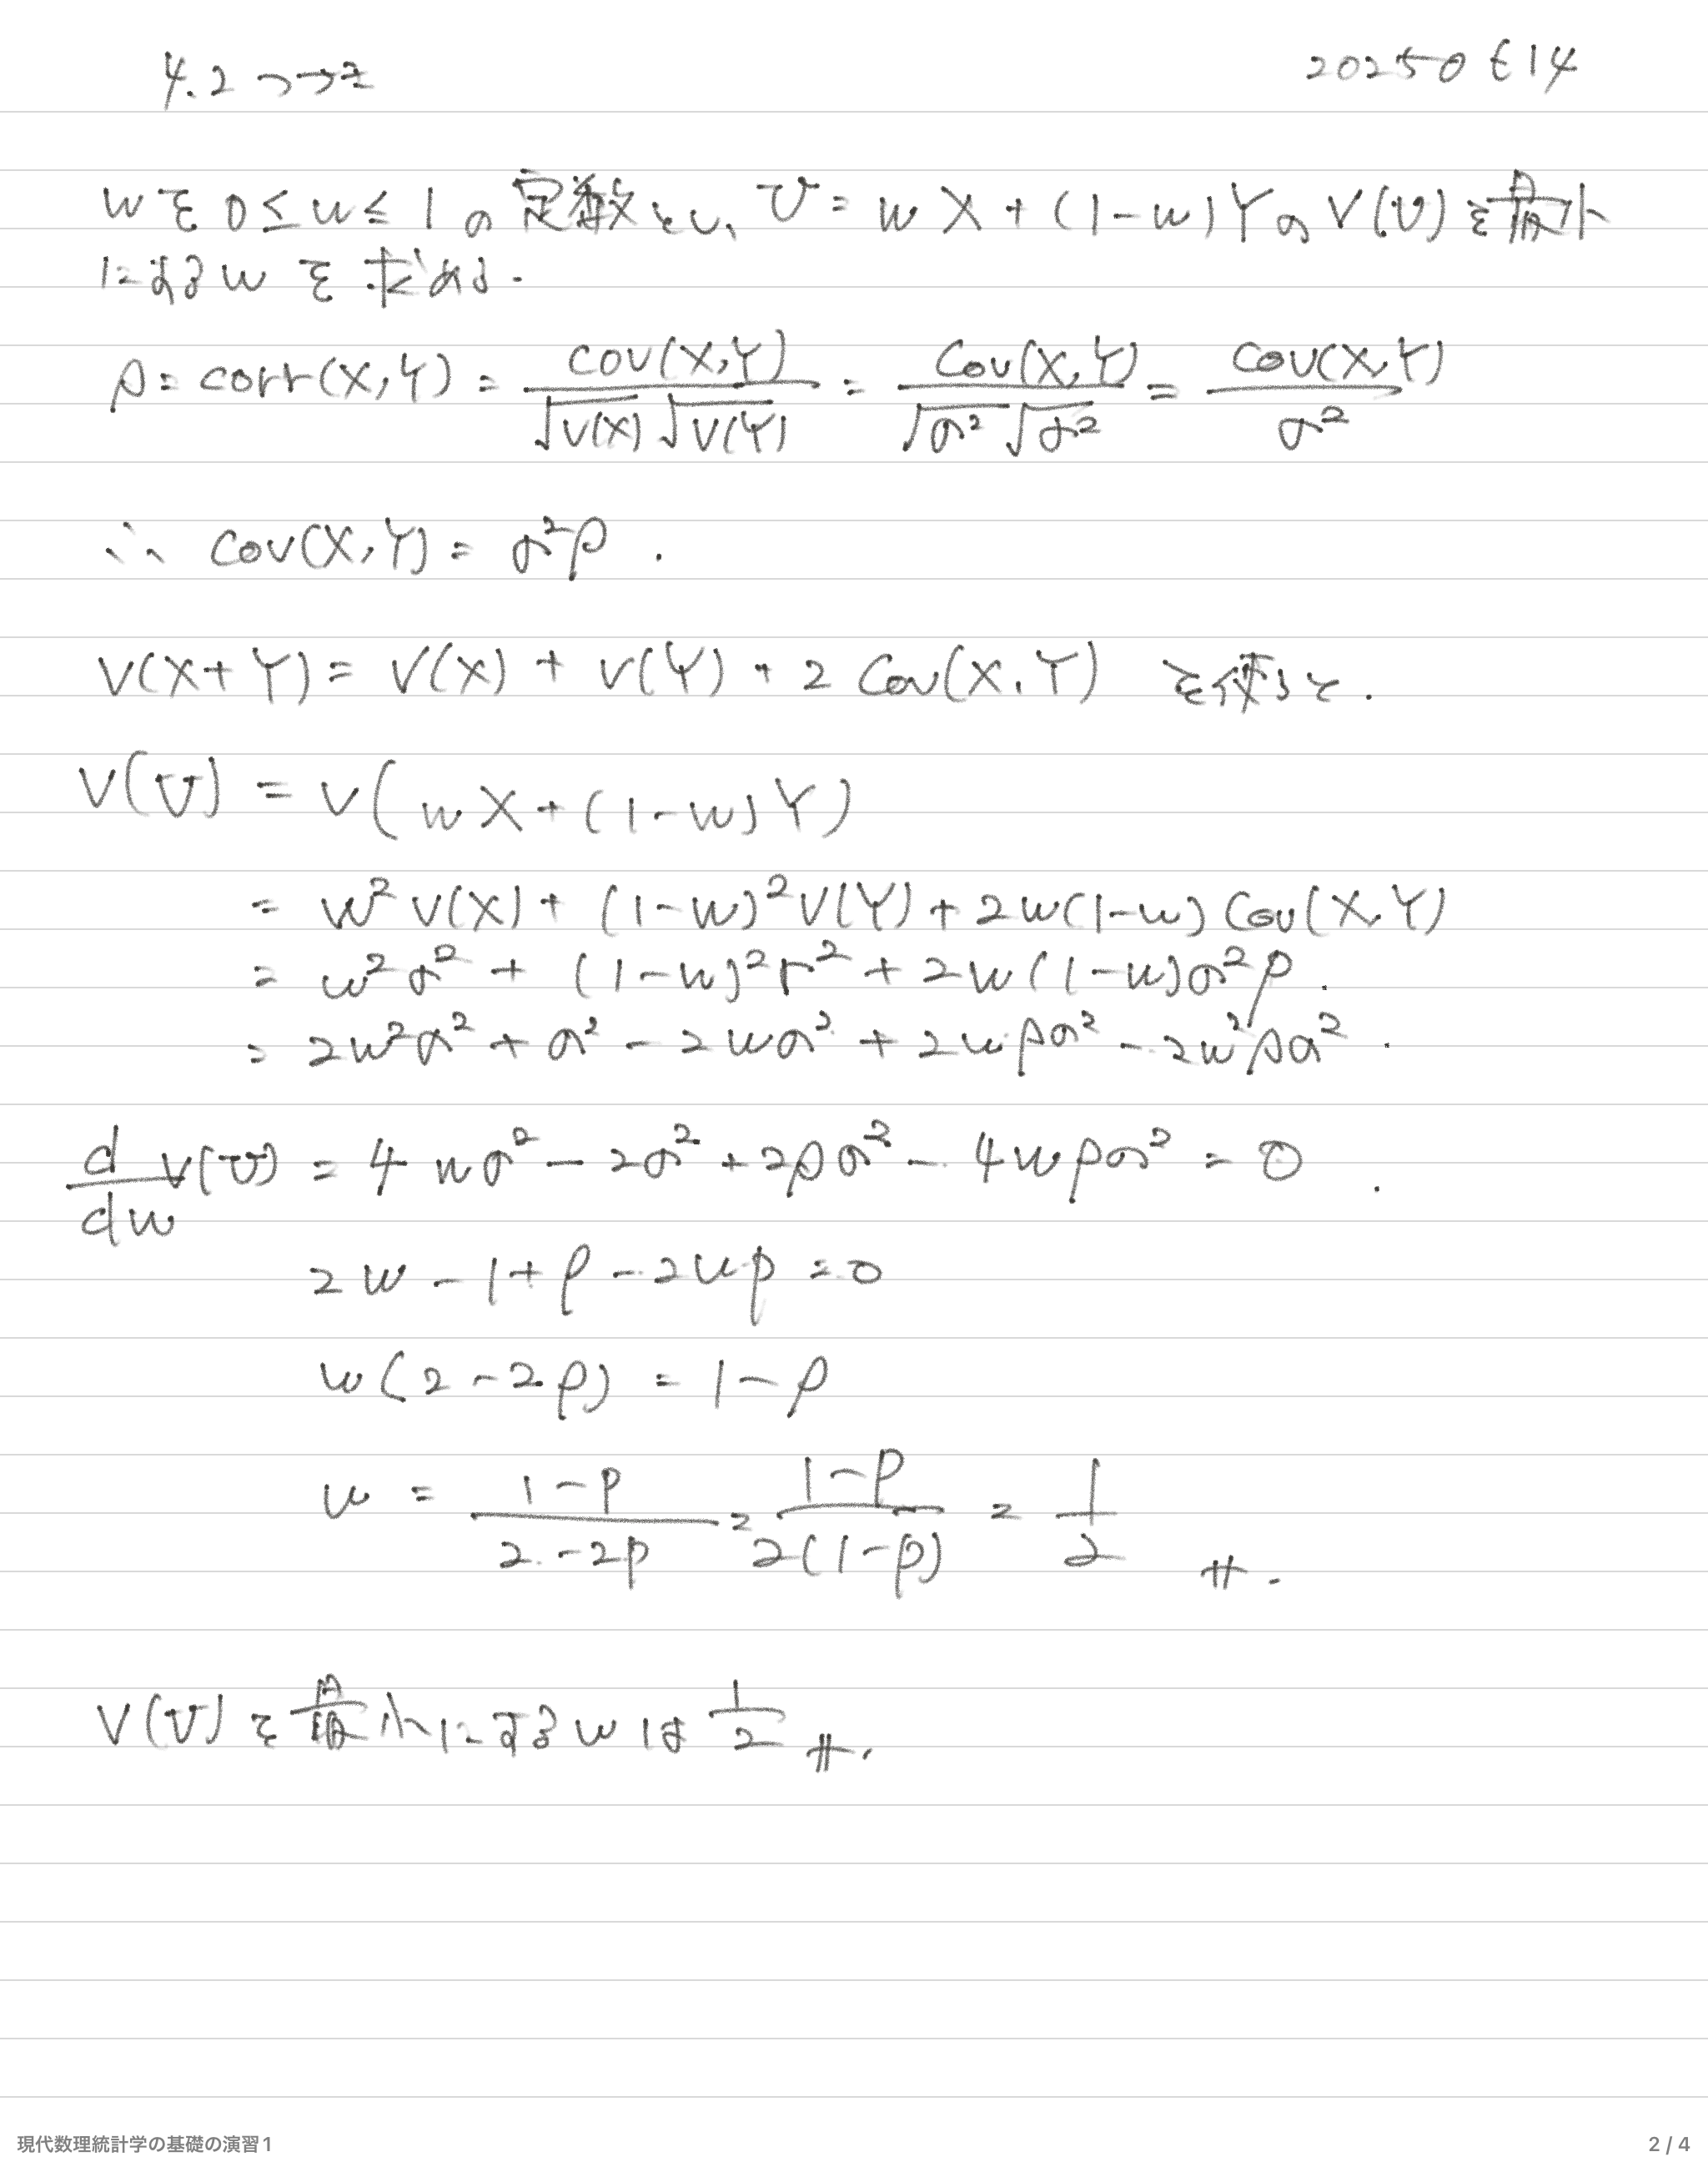 4.2 つづき
20250614
wを0≤w≤1の定数とし、U=wX+(1-w)YのV(U)を最小
にするwを求める.
ρ=corr(X,Y)=cov(X,Y)/(√V(X)√V(Y))=Cov(X,Y)/(√σ²√σ²)=cov(X,Y)/σ²
∴ cov(X,Y)=σ²ρ.
V(X+Y)=V(X)+V(Y)+2Cov(X,Y) を使うと.
V(U)=V(wX+(1-w)Y)
=w²V(X)+(1-w)²V(Y)+2w(1-w)Cov(X,Y)
=w²σ²+(1-w)²σ²+2w(1-w)σ²ρ.
=2w²σ²+σ²-2wσ²+2wρσ²-2w²ρσ².
d/dw V(U)=4wσ²-2σ²+2ρσ²-4wρσ²=0.
2w-1+ρ-2wρ=0
w(2-2ρ)=1-ρ
w=(1-ρ)/(2-2ρ)=(1-ρ)/(2(1-ρ))=1/2 #.
V(U)を最小にするwは1/2 #.
現代数理統計学の基礎の演習1
2 / 4